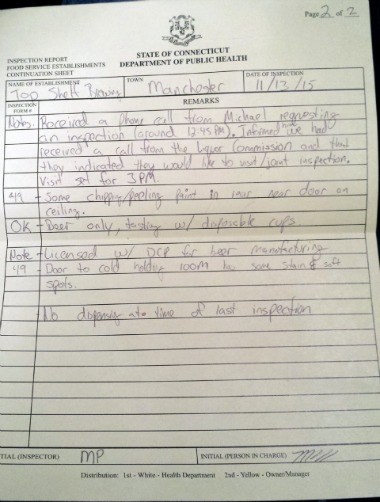 Page 2 of 2
INSPECTION REPORT
FOOD SERVICE ESTABLISHMENTS
CONTINUATION SHEET
STATE OF CONNECTICUT
DEPARTMENT OF PUBLIC HEALTH
NAME OF ESTABLISHMENT
Top Shelf Brewing
TOWN
Manchester
DATE OF INSPECTION
11/13/15
INSPECTION
FORM #
REMARKS
Note - Received a phone call from Michael requesting
an inspection (around 12:45 PM). Informed we had
received a call from the Liquor Commission and that
they indicated they would like to visit/joint inspection.
Visit set for 3 PM.
49 - Some chipping/peeling paint in rear near door on
ceiling.
OK - Beer only, tasting w/ disposable cups.
Note - Licensed w/ DCP for beer manufacturing
49 - Door to cold holding room has some stain & soft
spots.
- No dispensing at time of last inspection
INITIAL (INSPECTOR) MP
INITIAL (PERSON IN CHARGE)
Distribution: 1st - White - Health Department 2nd - Yellow - Owner/Manager